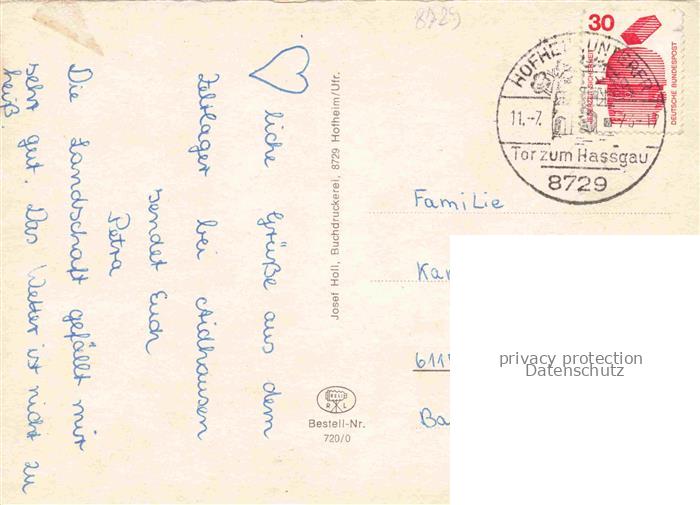 8729
♡ liche Grüße aus dem
Zeltlager bei Aidhausen
sendet Euch
Petra
Die Landschaft gefällt mir
sehr gut. Das Wetter ist nicht zu
heiß.
Josef Holl, Buchdruckerei, 8729 Hofheim/Ufr.
RL
Bestell-Nr.
720/0
30
DEUTSCHE BUNDESPOST
HOFHEIM UNTERFR
11.-7.
Tor zum Hassgau
8729
Familie
Kar
611
Ba
privacy protection
Datenschutz